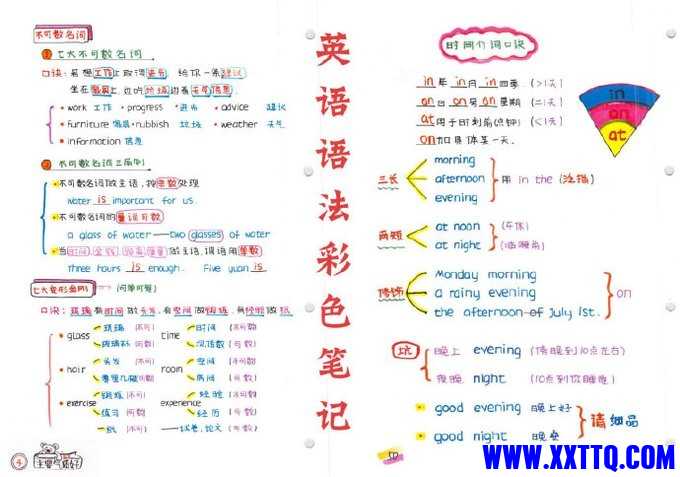 不可数名词
① 七大不可数名词
口诀: 若想工作上取得进步 给你一条建议
坐在家具上
• work 工作 • progress • 进步 • advice • 建议
• furniture 家具 • rubbish • 垃圾 • weather • 天气
• information 信息
② 不可数名词
不可数名词做主语, 按单数处理
water is important for us.
不可数名词的量词可数
a glass of water — two glasses of water
当时间, 金钱, 做主语, 谓语用单数
three hours is enough. Five yuan is
口诀: 玻璃有时间做头发, 有空间做锻炼, 有经验做纸
• glass 玻璃 (不可) time 时间 (不可数)
玻璃杯 (可数) 次/倍数 (可数)
• hair 头发 (不可) room 空间 (不可数)
房间 (可数)
• exercise 锻炼 (不可) experience 经验 (不可数)
练习 (可数) 经历 (可数)
纸 (不可) 试卷, 论文 (可数)
4
英语语法彩色笔记
时间介词口诀
in 年 in 月 in 四季 (>1天)
on 日 on 周 on 星期 (=1天)
at 用于时刻前(点钟) (<1天)
on 加具体某一天.
in
on
at
三长
morning
afternoon
evening
用 in the (注错)
两短
at noon (午休)
at night (临睡前)
修饰
Monday morning
a rainy evening
the afternoon of July 1st.
on
坑
晚上 evening (傍晚到10点左右)
夜晚 night (10点到你睡觉)
good evening 晚上好
good night 晚安
请细品
WWW.XXTTQ.COM